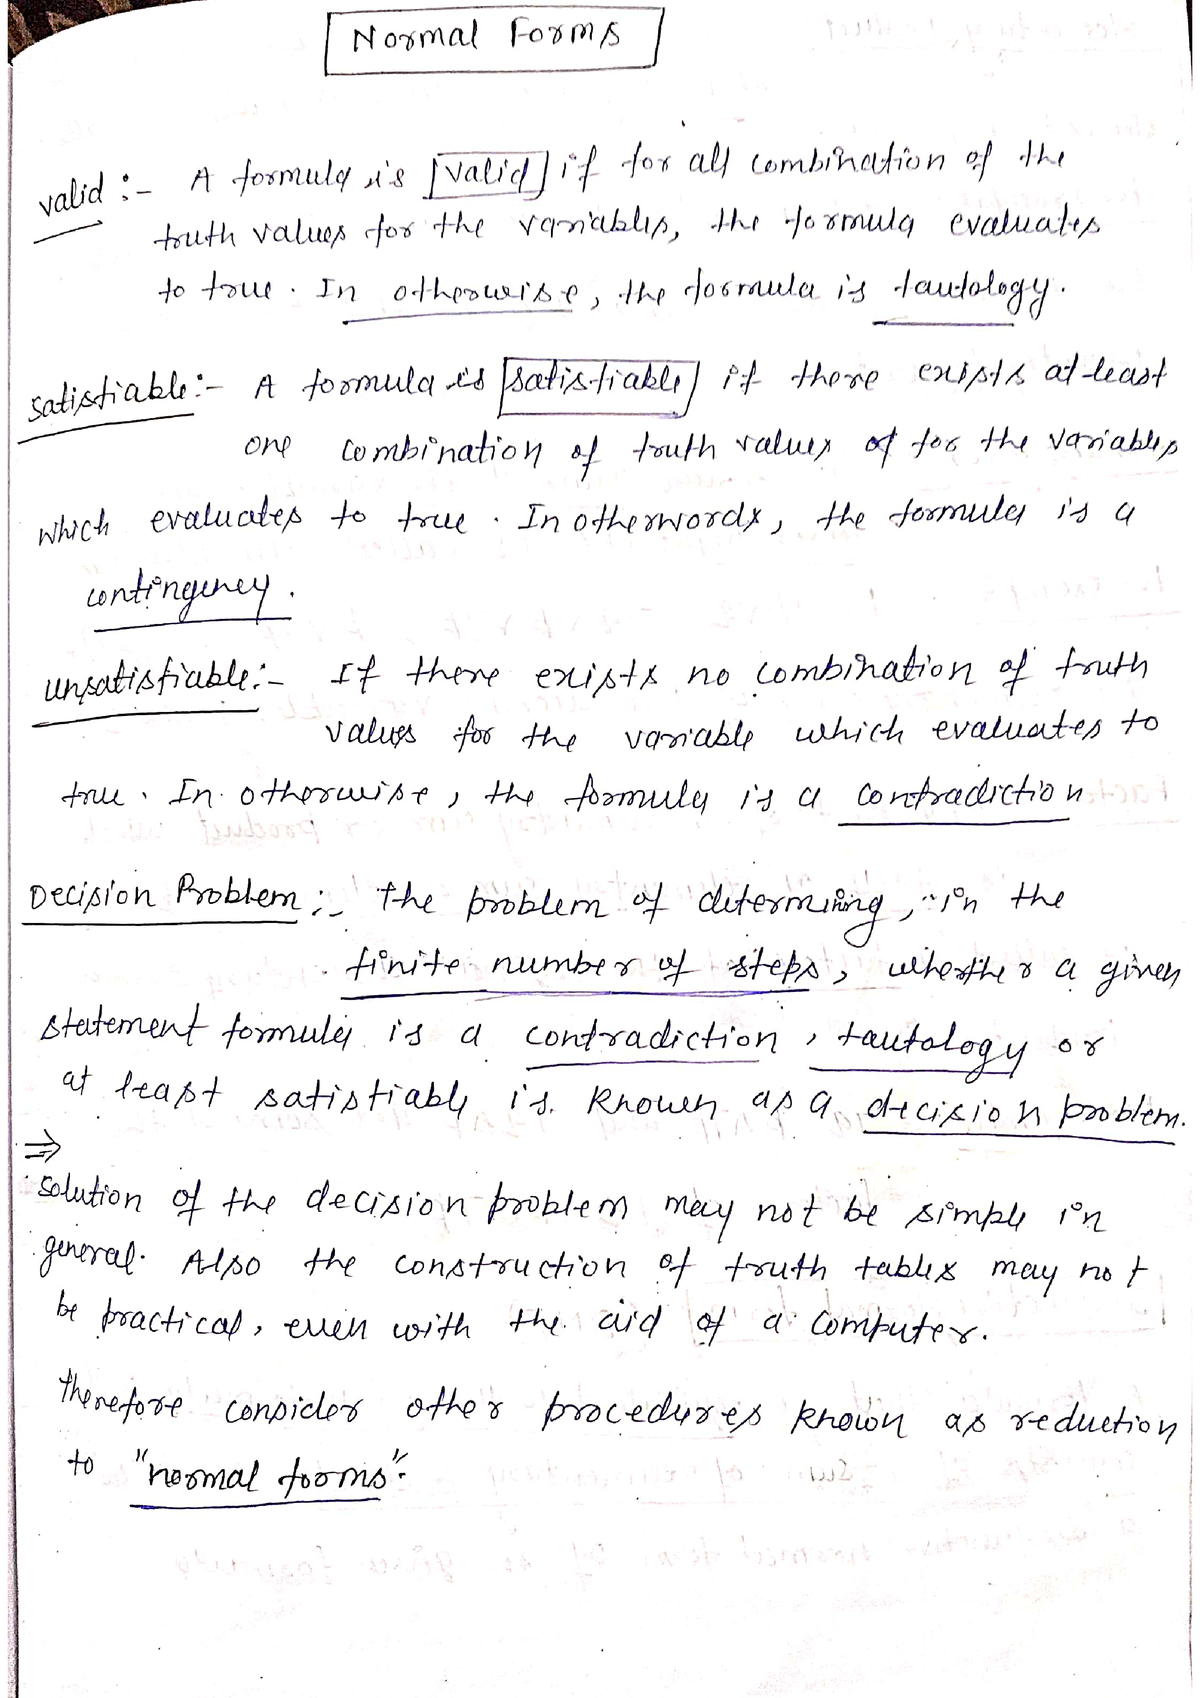 Normal Forms
valid :- A formula is valid if for all combination of the
truth values for the variables, the formula evaluates
to true. In otherwise, the formula is tautology.
satisfiable :- A formula is satisfiable if there exists at least
one combination of truth values of for the variables
which evaluates to true. In otherwords, the formula is a
contingency.
unsatisfiable :- If there exists no combination of truth
values for the variable which evaluates to
true. In otherwise, the formula is a contradiction
Decision Problem :- The problem of determining, in the
finite number of steps, whether a given
statement formula is a contradiction, tautology or
at least satisfiable is known as a decision problem.
⇒
solution of the decision problem may not be simple in
general. Also the construction of truth tables may not
be practical, even with the aid of a computer.
Therefore consider other procedures known as reduction
to "normal forms".